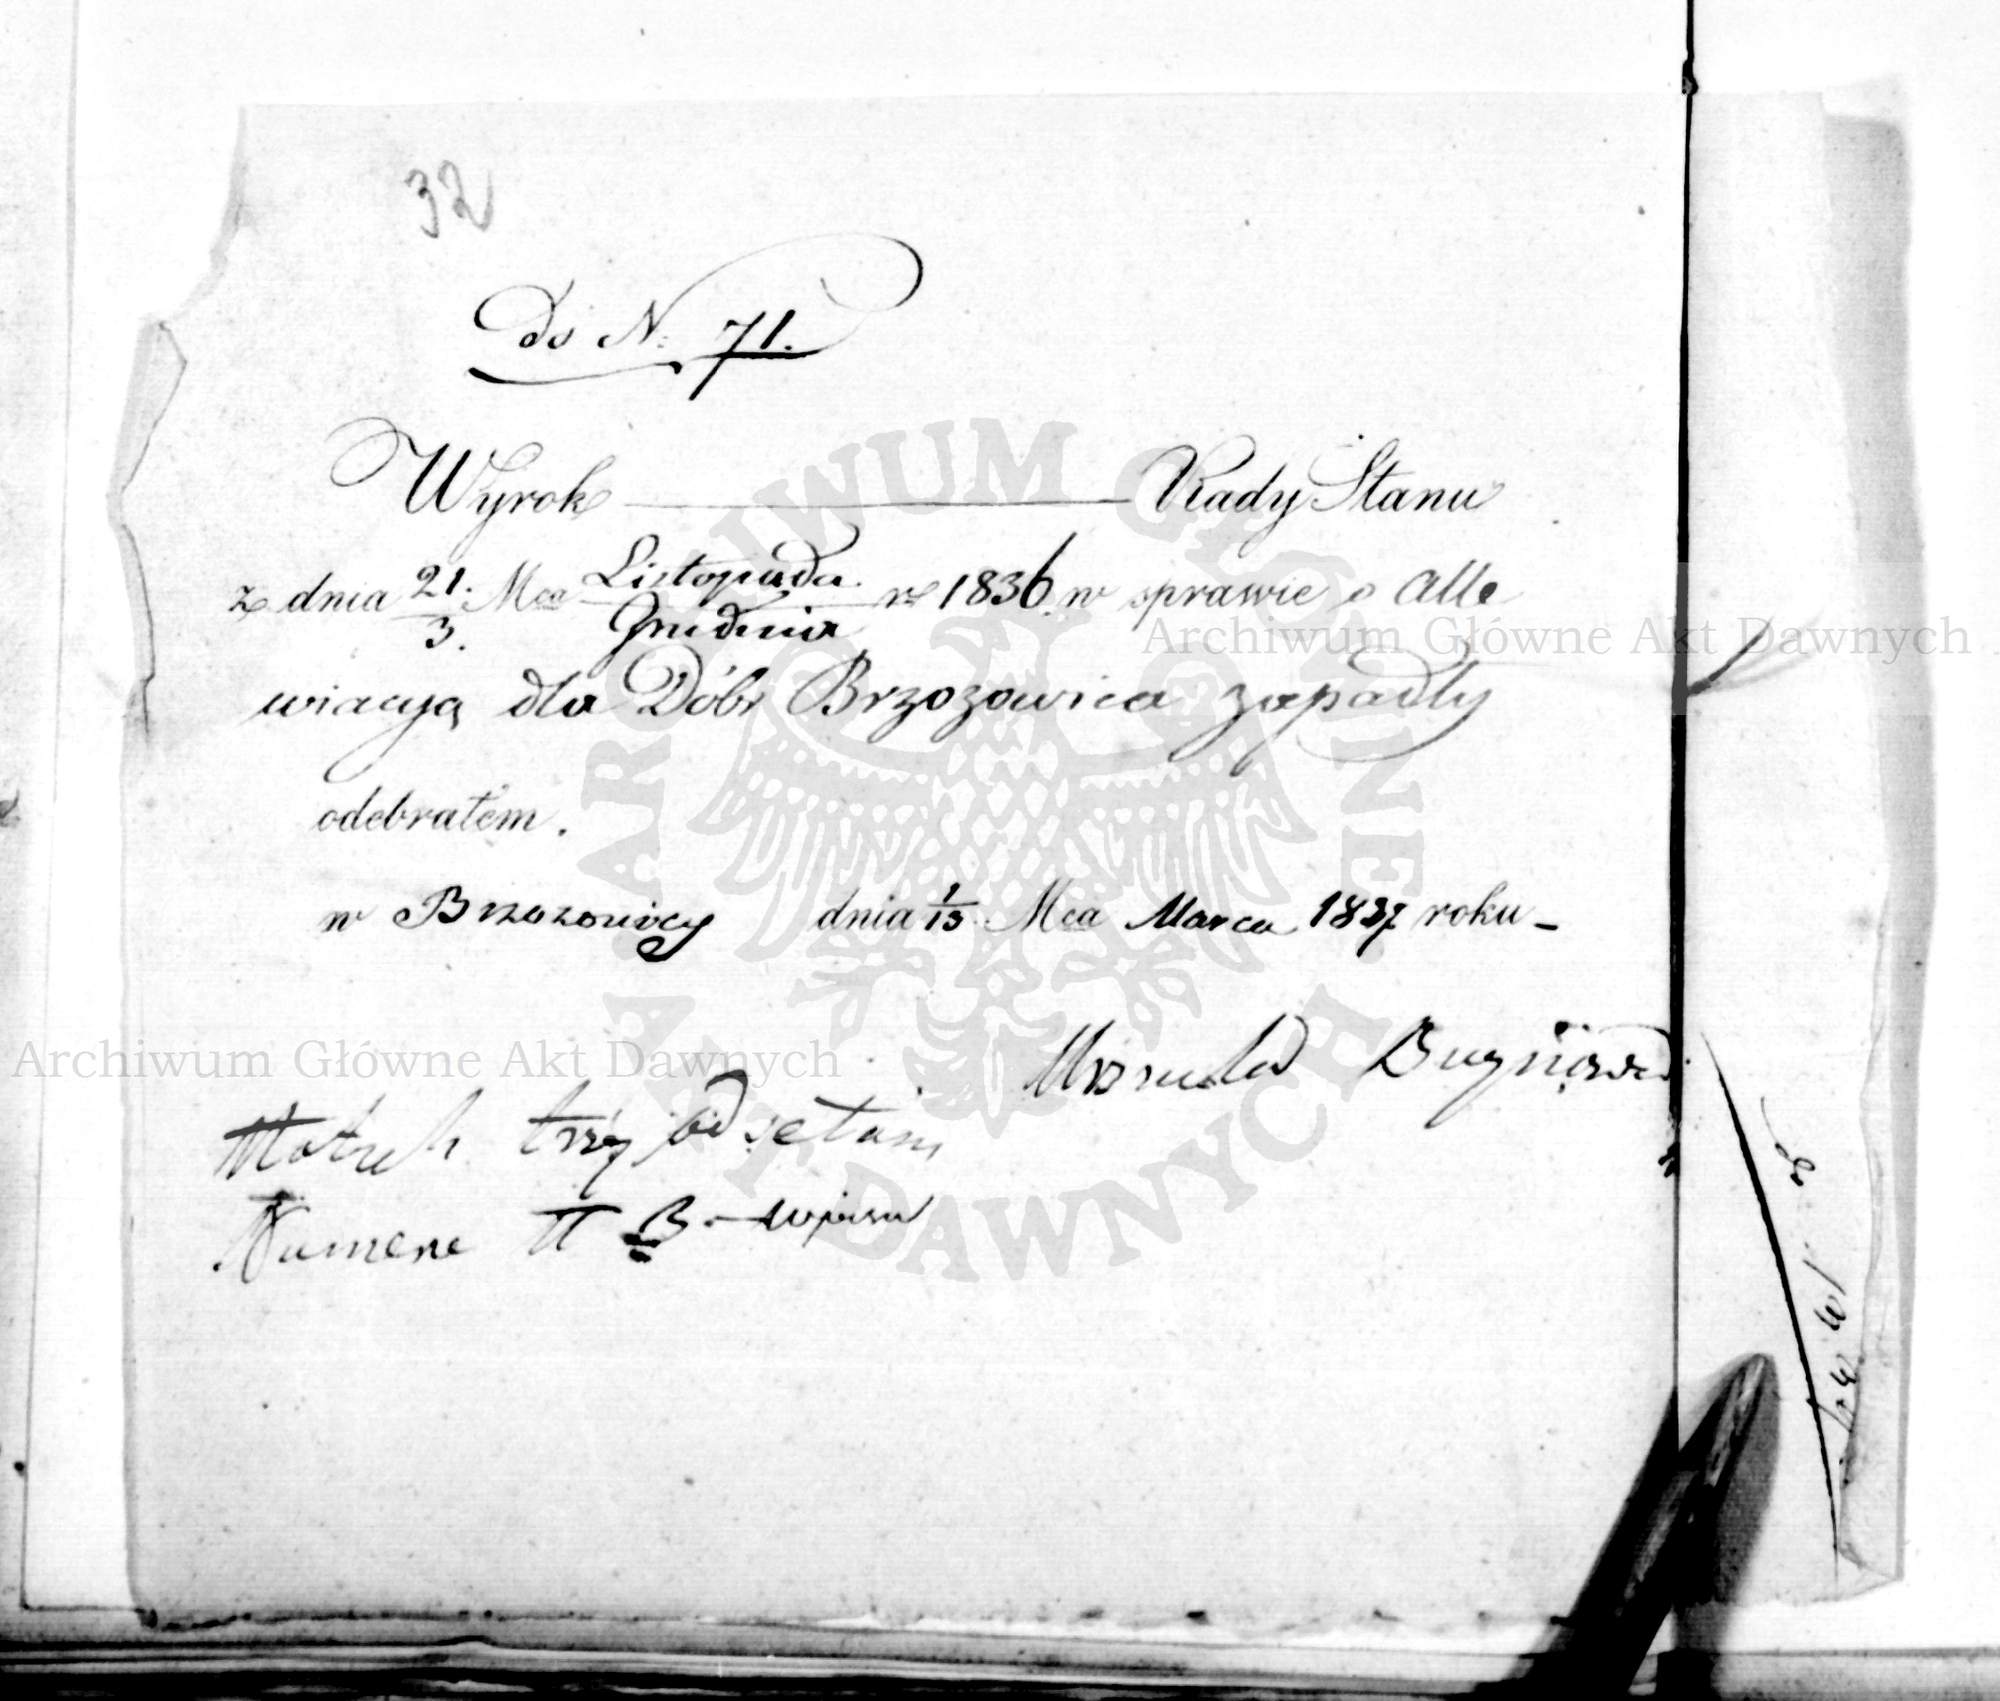 32
Do N: 71.
Wyrok Rady Stanu
z dnia 21./3. Mca Listopada/Grudnia r 1836 w sprawie o Alle
wiacyą dla Dóbr Brzozowica zapadły
odebrałem.
w Brzozowicy dnia 1/13 Mca Marca 1837 roku
Urszula
trzy odsełam
Numera
Archiwum Główne Akt Dawnych
Archiwum Główne Akt Dawnych
ARCHIWUM GŁÓWNE AKT DAWNYCH